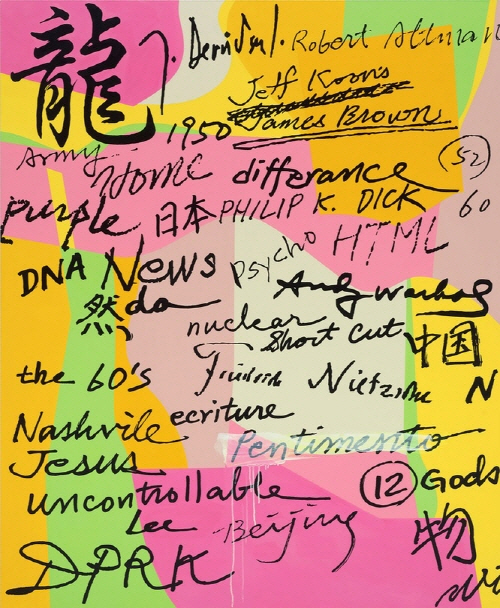 龍 J. Derrida. Robert Altman
Jeff Koons
James Brown
1950
Army Home differance 52
Purple 日本 PHILIP K. DICK 60
DNA News Psycho HTML
然 da Andy Warhog
nuclear Short Cut 中国
the 60's Friedrich Nietzsche N
Nashvile ecriture
Pentimento
Jesus
uncontrollable 12 Gods
Lee Beijing 物
DPRK